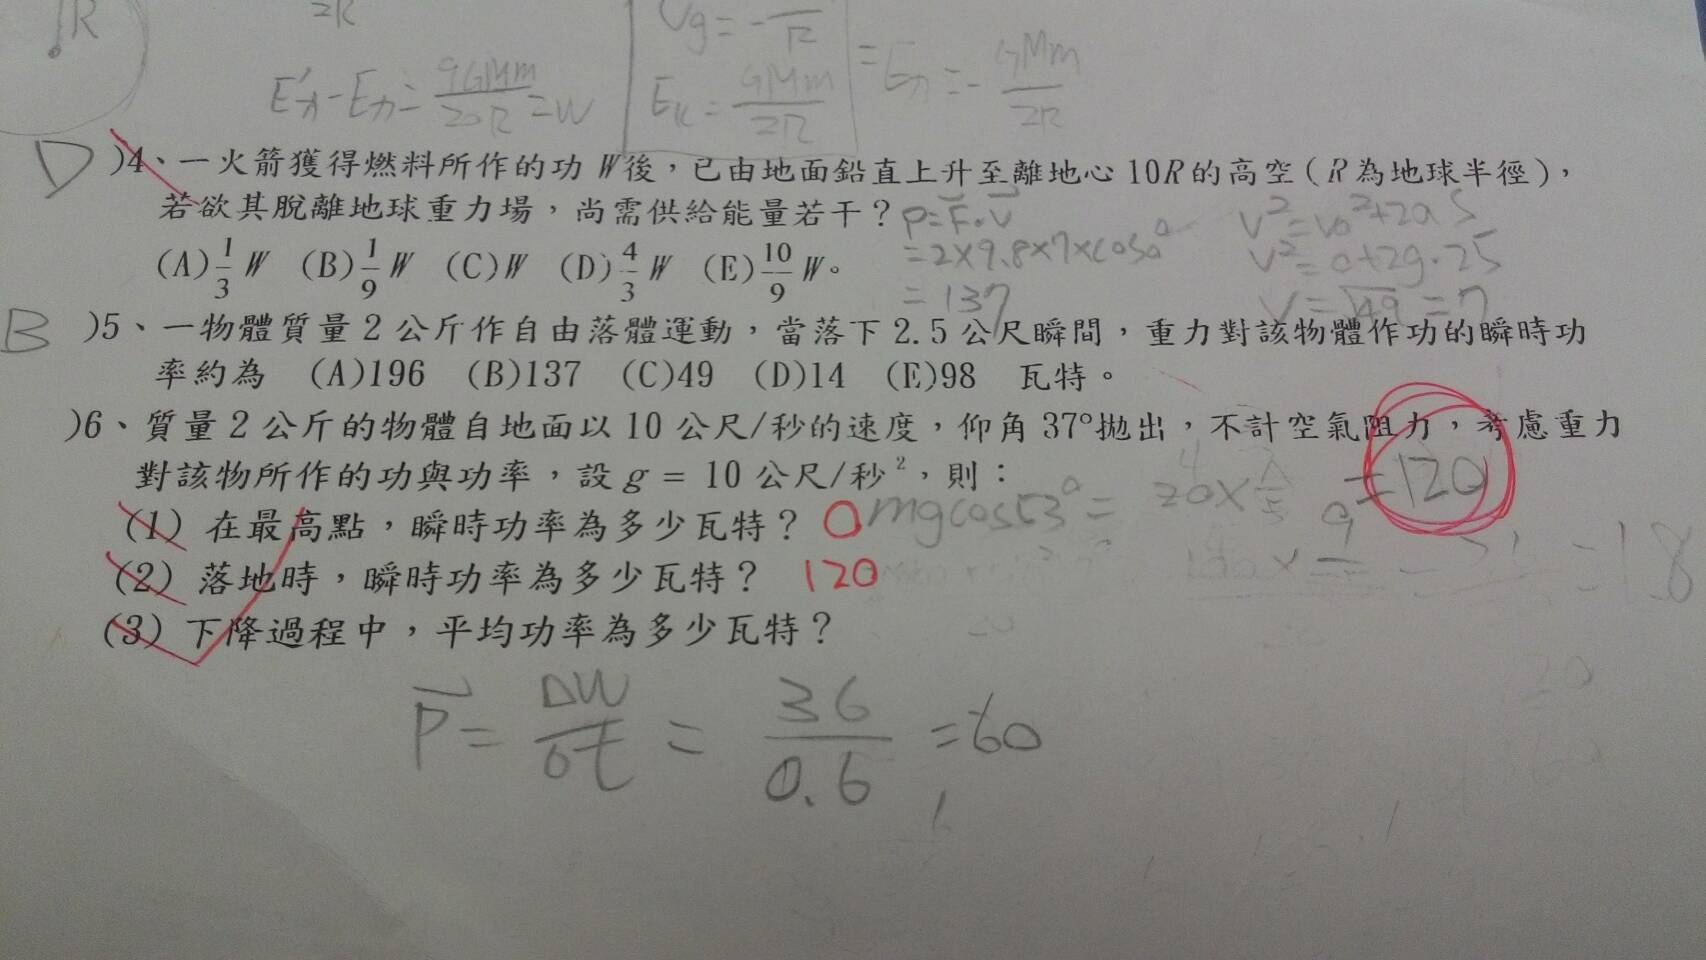 R
2R
Ug = -
R
E'力 - E力 = 9GMm/20R = W
Ek = GMm/2R
= E力 = - GMm/2R
D )4、一火箭獲得燃料所作的功 W後,已由地面鉛直上升至離地心 10R的高空(R為地球半徑),
若欲其脫離地球重力場,尚需供給能量若干?
P = F·V
= 2×9.8×7×cos0°
= 137
V² = V0² + 2aS
V² = 0 + 2g·2.5
V = √49 = 7
(A) 1/3 W (B) 1/9 W (C) W (D) 4/3 W (E) 10/9 W。
B )5、一物體質量 2 公斤作自由落體運動,當落下 2.5 公尺瞬間,重力對該物體作功的瞬時功
率約為 (A)196 (B)137 (C)49 (D)14 (E)98 瓦特。
)6、質量 2 公斤的物體自地面以 10 公尺/秒的速度,仰角 37°拋出,不計空氣阻力,考慮重力
對該物所作的功與功率,設 g = 10 公尺/秒²,則:
(1) 在最高點,瞬時功率為多少瓦特? 0 mgcos53° = 20× = 120
(2) 落地時,瞬時功率為多少瓦特? 120
= 18
(3) 下降過程中,平均功率為多少瓦特?
P = ΔW/Δt = 36/0.6 = 60